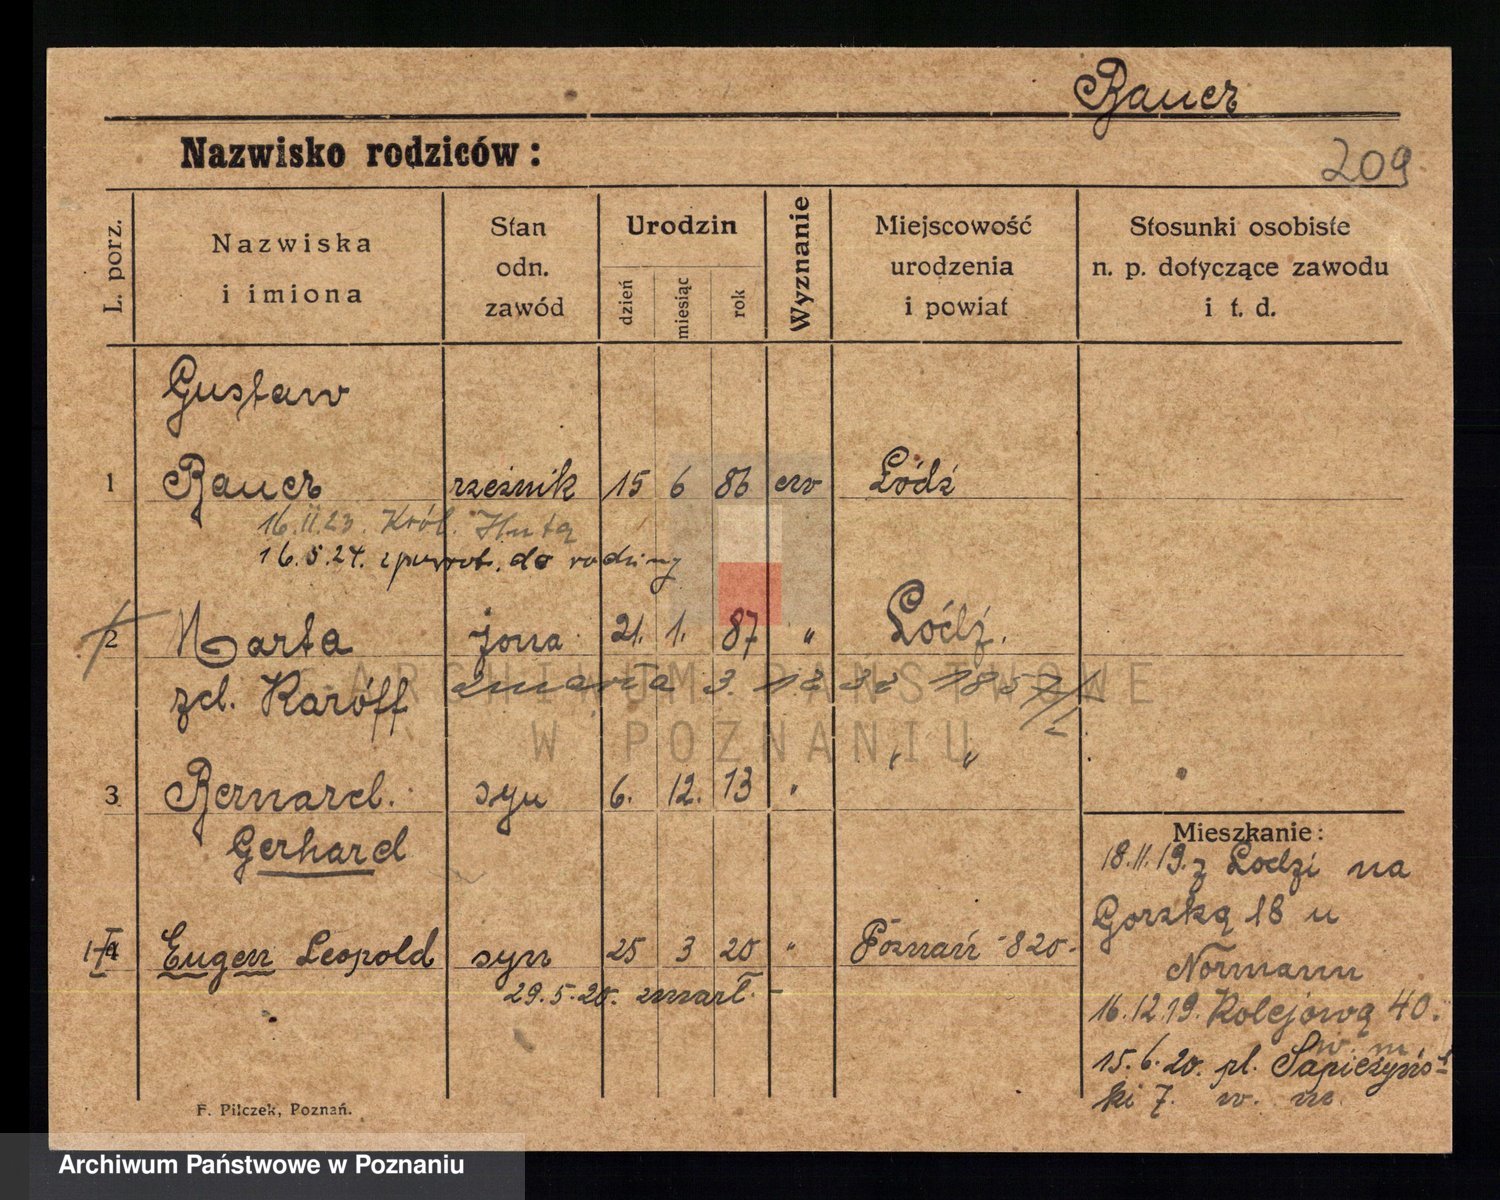 Bauer
Nazwisko rodziców:
209
L. porz.
Nazwiska
i imiona
Stan
odn.
zawód
Urodzin
dzień
miesiąc
rok
Wyznanie
Miejscowość
urodzenia
i powiat
Stosunki osobiste
n. p. dotyczące zawodu
i t. d.
Gustaw
1 Bauer rzeźnik 15 6 86 ew Łódź
16.II.23. Król. Huta
16.5.24. z powrot. do rodziny
2 Marta żona 21. 1. 87 " Łódź.
zd. Karöff zmarła 3. 12
" "
3 Bernard. syn 6. 12. 13 "
Gerhard
4 Eugen Leopold syn 25 3 20 " Poznań -820-
29.5.20. zmarł. -
Mieszkanie:
18.11.19. z Lodzi na
Gorzką 18 u
Normann
16.12.19. Kolejową 40.
w. m.
15.6.20. pl. Sapieżyńs-
ki 7. w. m.
F. Pilczek, Poznań.
ARCHIWUM PAŃSTWOWE
W POZNANIU
Archiwum Państwowe w Poznaniu